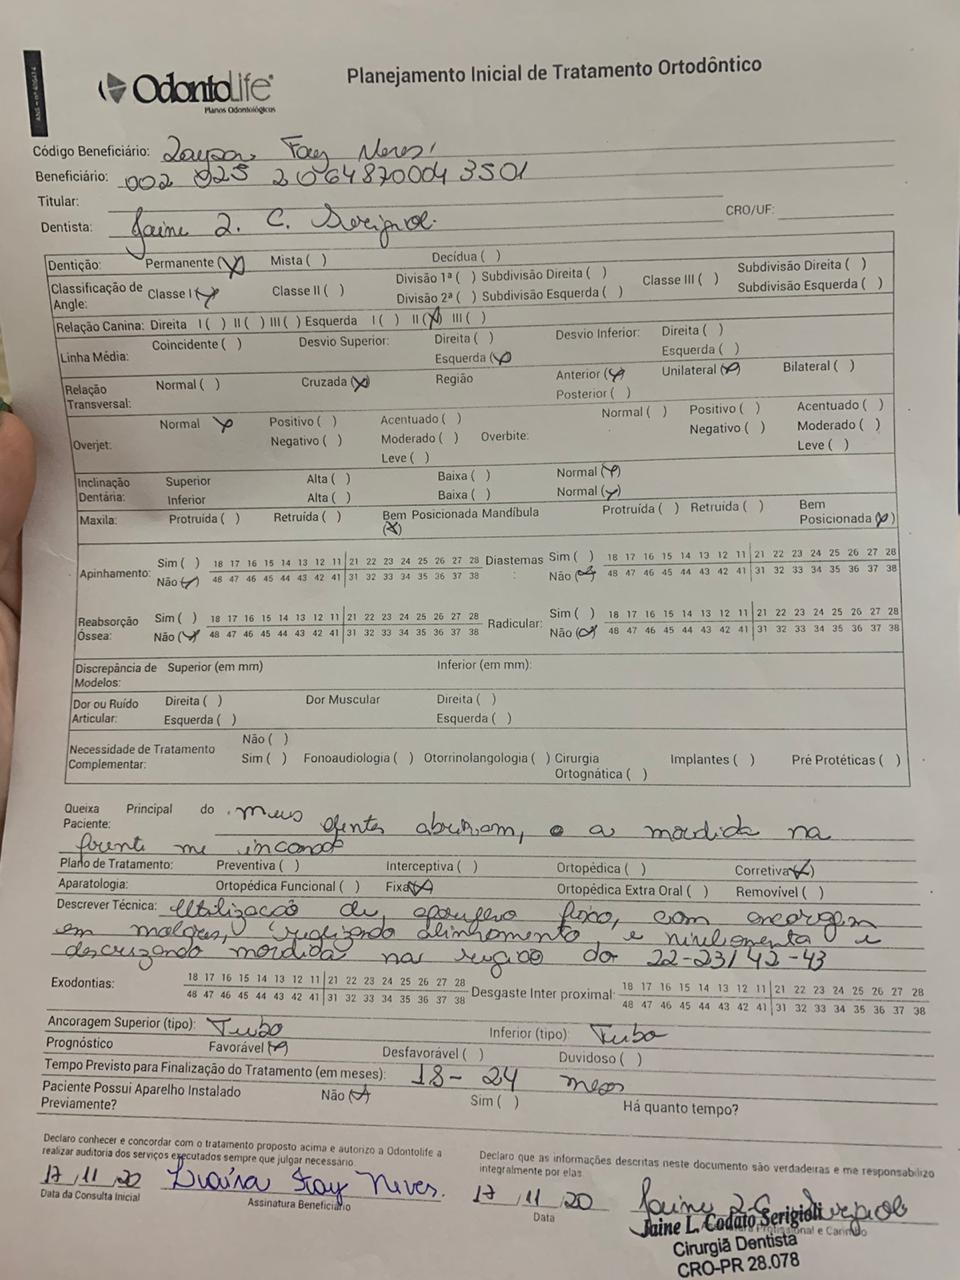 ANS - nº 406414
OdontoLife
Planos Odontológicos
Planejamento Inicial de Tratamento Ortodôntico
Código Beneficiário: Fay Neves
Beneficiário: 002 025 20648700043501
Titular:
Dentista: Jaine L. C. Serigioli CRO/UF:
Dentição: Permanente (X) Mista ( ) Decídua ( )
Classificação de Angle: Classe I (X) Classe II ( ) Divisão 1ª ( ) Subdivisão Direita ( ) Classe III ( ) Subdivisão Direita ( )
Divisão 2ª ( ) Subdivisão Esquerda ( ) Subdivisão Esquerda ( )
Relação Canina: Direita I ( ) II ( ) III ( ) Esquerda I ( ) II (X) III ( )
Linha Média: Coincidente ( ) Desvio Superior: Direita ( ) Desvio Inferior: Direita ( )
Esquerda (X) Esquerda ( )
Relação Transversal: Normal ( ) Cruzada (X) Região Anterior (X) Unilateral (X) Bilateral ( )
Posterior ( )
Overjet: Normal X Positivo ( ) Acentuado ( ) Overbite: Normal ( ) Positivo ( ) Acentuado ( )
Negativo ( ) Moderado ( ) Negativo ( ) Moderado ( )
Leve ( ) Leve ( )
Inclinação Dentária: Superior Alta ( ) Baixa ( ) Normal (X)
Inferior Alta ( ) Baixa ( ) Normal (X)
Maxila: Protruída ( ) Retruída ( ) Bem Posicionada (X) Mandíbula Protruída ( ) Retruída ( ) Bem Posicionada (X)
Apinhamento: Sim ( ) 18 17 16 15 14 13 12 11 21 22 23 24 25 26 27 28 Diastemas: Sim ( ) 18 17 16 15 14 13 12 11 21 22 23 24 25 26 27 28
Não (X) 48 47 46 45 44 43 42 41 31 32 33 34 35 36 37 38 Não (X) 48 47 46 45 44 43 42 41 31 32 33 34 35 36 37 38
Reabsorção Óssea: Sim ( ) 18 17 16 15 14 13 12 11 21 22 23 24 25 26 27 28 Radicular: Sim ( ) 18 17 16 15 14 13 12 11 21 22 23 24 25 26 27 28
Não (X) 48 47 46 45 44 43 42 41 31 32 33 34 35 36 37 38 Não (X) 48 47 46 45 44 43 42 41 31 32 33 34 35 36 37 38
Discrepância de Modelos: Superior (em mm) Inferior (em mm):
Dor ou Ruído Articular: Direita ( ) Dor Muscular Direita ( )
Esquerda ( ) Esquerda ( )
Necessidade de Tratamento Complementar: Não ( )
Sim ( ) Fonoaudiologia ( ) Otorrinolangologia ( ) Cirurgia Ortognática ( ) Implantes ( ) Pré Protéticas ( )
Queixa Principal do Paciente: meus dentes abriram, e a mordida na
frente me incomoda
Plano de Tratamento: Preventiva ( ) Interceptiva ( ) Ortopédica ( ) Corretiva (X)
Aparatologia: Ortopédica Funcional ( ) Fixa (X) Ortopédica Extra Oral ( ) Removível ( )
Descrever Técnica: Utilização de aparelho fixo, com ancoragem
em molares, realizando alinhamento e nivelamento e
descruzando mordida na região do 22-23/42-43
Exodontias: 18 17 16 15 14 13 12 11 21 22 23 24 25 26 27 28 Desgaste Inter proximal: 18 17 16 15 14 13 12 11 21 22 23 24 25 26 27 28
48 47 46 45 44 43 42 41 31 32 33 34 35 36 37 38 48 47 46 45 44 43 42 41 31 32 33 34 35 36 37 38
Ancoragem Superior (tipo): Tubo Inferior (tipo): Tubo
Prognóstico Favorável (X) Desfavorável ( ) Duvidoso ( )
Tempo Previsto para Finalização do Tratamento (em meses): 18 - 24 meses
Paciente Possui Aparelho Instalado Previamente? Não (X) Sim ( ) Há quanto tempo?
Declaro conhecer e concordar com o tratamento proposto acima e autorizo a Odontolife a
realizar auditoria dos serviços executados sempre que julgar necessário.
Declaro que as informações descritas neste documento são verdadeiras e me responsabilizo
integralmente por elas.
17/11/20 Fay Neves. 17/11/20 Jaine L C Serigioli
Data da Consulta Inicial Assinatura Beneficiário Data Profissional e Carimbo
Jaine L. Codato Serigioli
Cirurgiã Dentista
CRO-PR 28.078